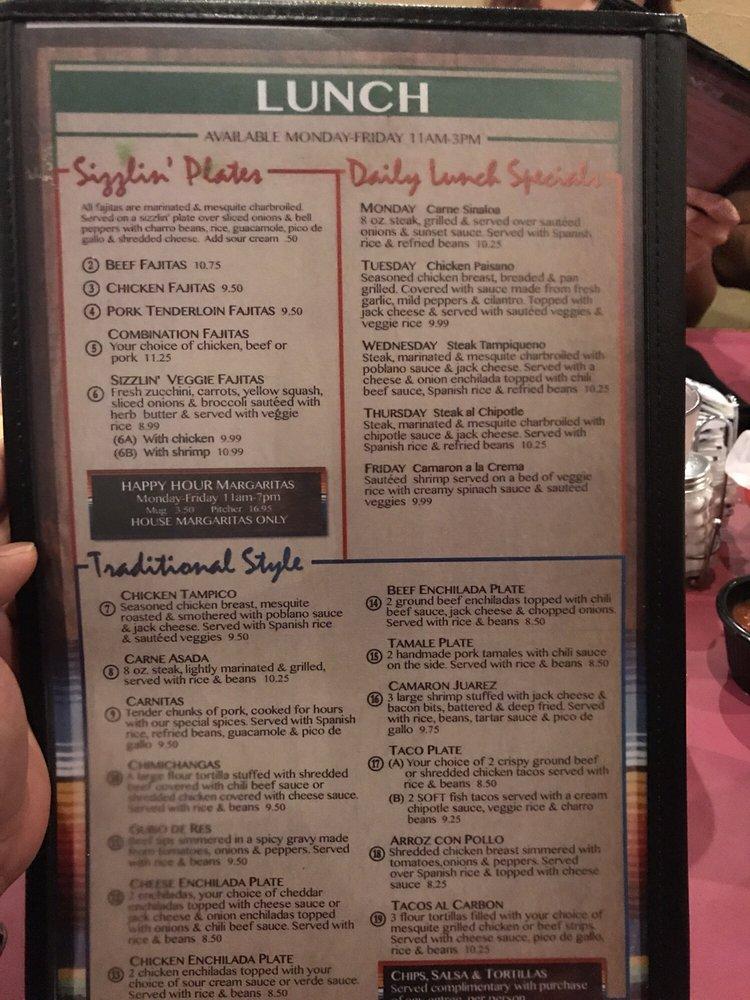 LUNCH
AVAILABLE MONDAY-FRIDAY 11AM-3PM
Sizzlin' Plates
All fajitas are marinated & mesquite charbroiled.
Served on a sizzlin' plate over sliced onions & bell
peppers with charro beans, rice, guacamole, pico de
gallo & shredded cheese. Add sour cream .50
2 BEEF FAJITAS 10.75
3 CHICKEN FAJITAS 9.50
4 PORK TENDERLOIN FAJITAS 9.50
COMBINATION FAJITAS
5 Your choice of chicken, beef or
pork 11.25
SIZZLIN' VEGGIE FAJITAS
6 Fresh zucchini, carrots, yellow squash,
sliced onions & broccoli sautéed with
herb butter & served with veggie
rice 8.99
(6A) With chicken 9.99
(6B) With shrimp 10.99
HAPPY HOUR MARGARITAS
Monday-Friday 11am-7pm
Mug 3.50 Pitcher 16.95
HOUSE MARGARITAS ONLY
Daily Lunch Specials
MONDAY Carne Sinaloa
8 oz. steak, grilled & served over sautéed
onions & sunset sauce. Served with Spanish
rice & refried beans 10.25
TUESDAY Chicken Paisano
Seasoned chicken breast, breaded & pan
grilled. Covered with sauce made from fresh
garlic, mild peppers & cilantro. Topped with
jack cheese & served with sautéed veggies &
veggie rice 9.99
WEDNESDAY Steak Tampiqueno
Steak, marinated & mesquite charbroiled with
poblano sauce & jack cheese. Served with a
cheese & onion enchilada topped with chili
beef sauce, Spanish rice & refried beans 10.25
THURSDAY Steak al Chipotle
Steak, marinated & mesquite charbroiled with
chipotle sauce & jack cheese. Served with
Spanish rice & refried beans 10.25
FRIDAY Camaron a la Crema
Sautéed shrimp served on a bed of veggie
rice with creamy spinach sauce & sautéed
veggies 9.99
Traditional Style
CHICKEN TAMPICO
7 Seasoned chicken breast, mesquite
roasted & smothered with poblano sauce
& jack cheese. Served with Spanish rice
& sautéed veggies 9.50
CARNE ASADA
8 8 oz. steak, lightly marinated & grilled,
served with rice & beans 10.25
CARNITAS
9 Tender chunks of pork, cooked for hours
with our special spices. Served with Spanish
rice, refried beans, guacamole & pico de
gallo 9.50
CHIMICHANGAS
10 A large flour tortilla stuffed with shredded
beef covered with chili beef sauce or
shredded chicken covered with cheese sauce.
Served with rice & beans 9.50
GUISO DE RES
Beef tips simmered in a spicy gravy made
from tomatoes, onions & peppers. Served
with rice & beans 9.50
CHEESE ENCHILADA PLATE
2 enchiladas, your choice of cheddar
enchiladas topped with cheese sauce or
jack cheese & onion enchiladas topped
with onions & chili beef sauce. Served with
rice & beans 8.50
CHICKEN ENCHILADA PLATE
13 2 chicken enchiladas topped with your
choice of sour cream sauce or verde sauce.
Served with rice & beans 8.50
BEEF ENCHILADA PLATE
14 2 ground beef enchiladas topped with chili
beef sauce, jack cheese & chopped onions.
Served with rice & beans 8.50
TAMALE PLATE
15 2 handmade pork tamales with chili sauce
on the side. Served with rice & beans 8.50
CAMARON JUAREZ
16 3 large shrimp stuffed with jack cheese &
bacon bits, battered & deep fried. Served
with rice, beans, tartar sauce & pico de
gallo 9.75
TACO PLATE
17 (A) Your choice of 2 crispy ground beef
or shredded chicken tacos served with
rice & beans 8.50
(B) 2 SOFT fish tacos served with a cream
chipotle sauce, veggie rice & charro
beans 9.25
ARROZ CON POLLO
18 Shredded chicken breast simmered with
tomatoes,onions & peppers. Served
over Spanish rice & topped with cheese
sauce 8.25
TACOS AL CARBON
19 3 flour tortillas filled with your choice of
mesquite grilled chicken or beef strips.
Served with cheese sauce, pico de gallo,
rice & beans 10.25
CHIPS, SALSA & TORTILLAS
Served complimentary with purchase
of any entree, per person